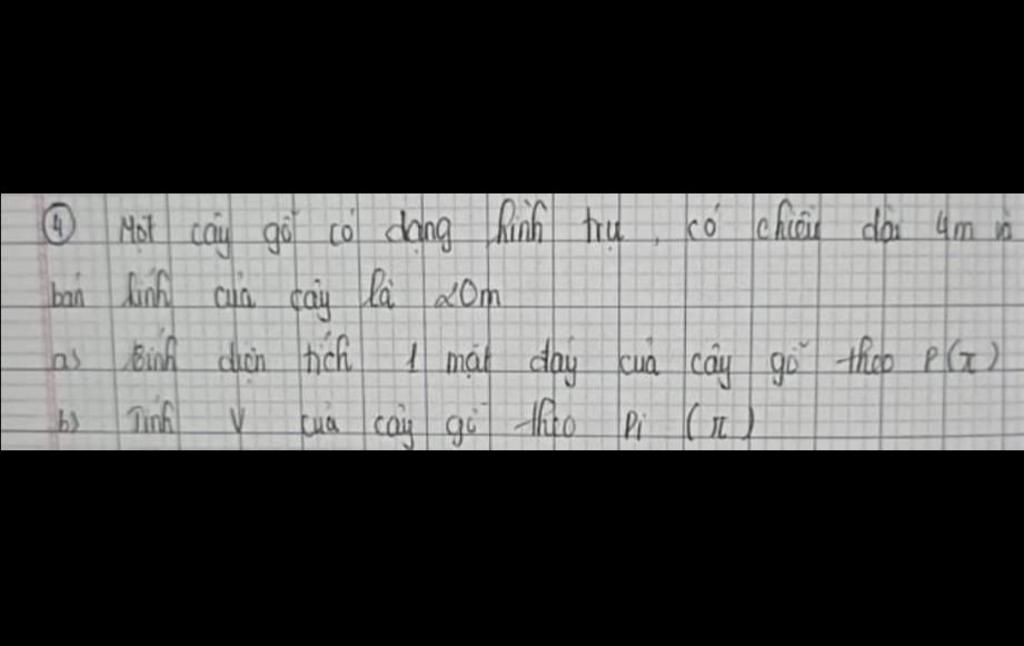 ④ Một cây gỗ có dạng hình trụ, có chiều dài 4m và
bán kính của cây là 20m
a) Tính diện tích 1 mặt đáy của cây gỗ theo P(π)
b) Tính V của cây gỗ theo Pi (π)